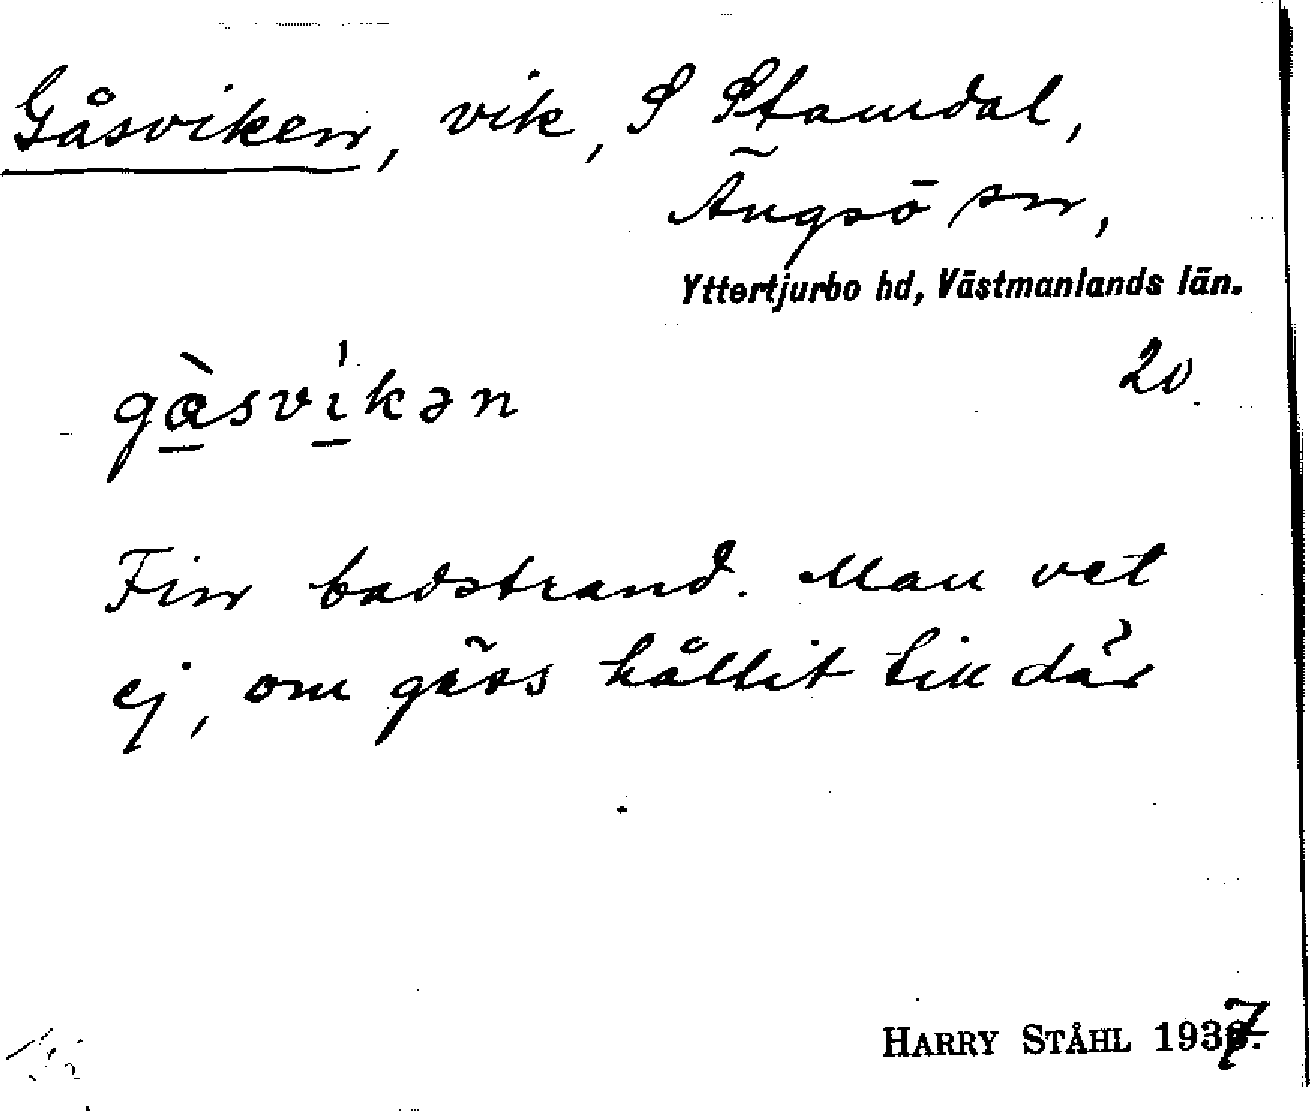 Gåsviken, vik, S Stamdal,
Ängsö sn,
Yttertjurbo hd, Västmanlands län.
gàsvíkən
20.
Fin badstrand. Man vet
ej, om gäss hållit till där
HARRY STÅHL 1937.